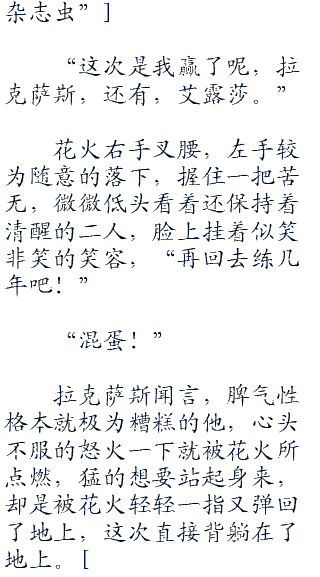 杂志虫”]
“这次是我赢了呢，拉
克萨斯，还有，艾露莎。”
花火右手叉腰，左手较
为随意的落下，握住一把苦
无，微微低头看着还保持着
清醒的二人，脸上挂着似笑
非笑的笑容，“再回去练几
年吧！”
“混蛋！”
拉克萨斯闻言，脾气性
格本就极为糟糕的他，心头
不服的怒火一下就被花火所
点燃，猛的想要站起身来，
却是被花火轻轻一指又弹回
了地上，这次直接背躺在了
地上。[